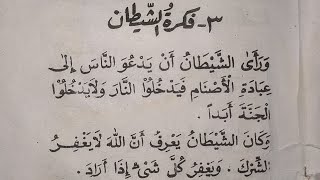 ٣- فكرة الشيطان
وَرَأَى الشَّيْطَانُ أَنْ يَدْعُوَ النَّاسَ إِلَى
عِبَادَةِ الْأَصْنَامِ فَيَدْخُلُوا النَّارَ وَلَا يَدْخُلُوا
الْجَنَّةَ أَبَداً .
وَكَانَ الشَّيْطَانُ يَعْرِفُ أَنَّ اللهَ لَا يَغْفِرُ
الشِّرْكَ . وَيَغْفِرُ كُلَّ شَيْءٍ إِذَا أَرَادَ .